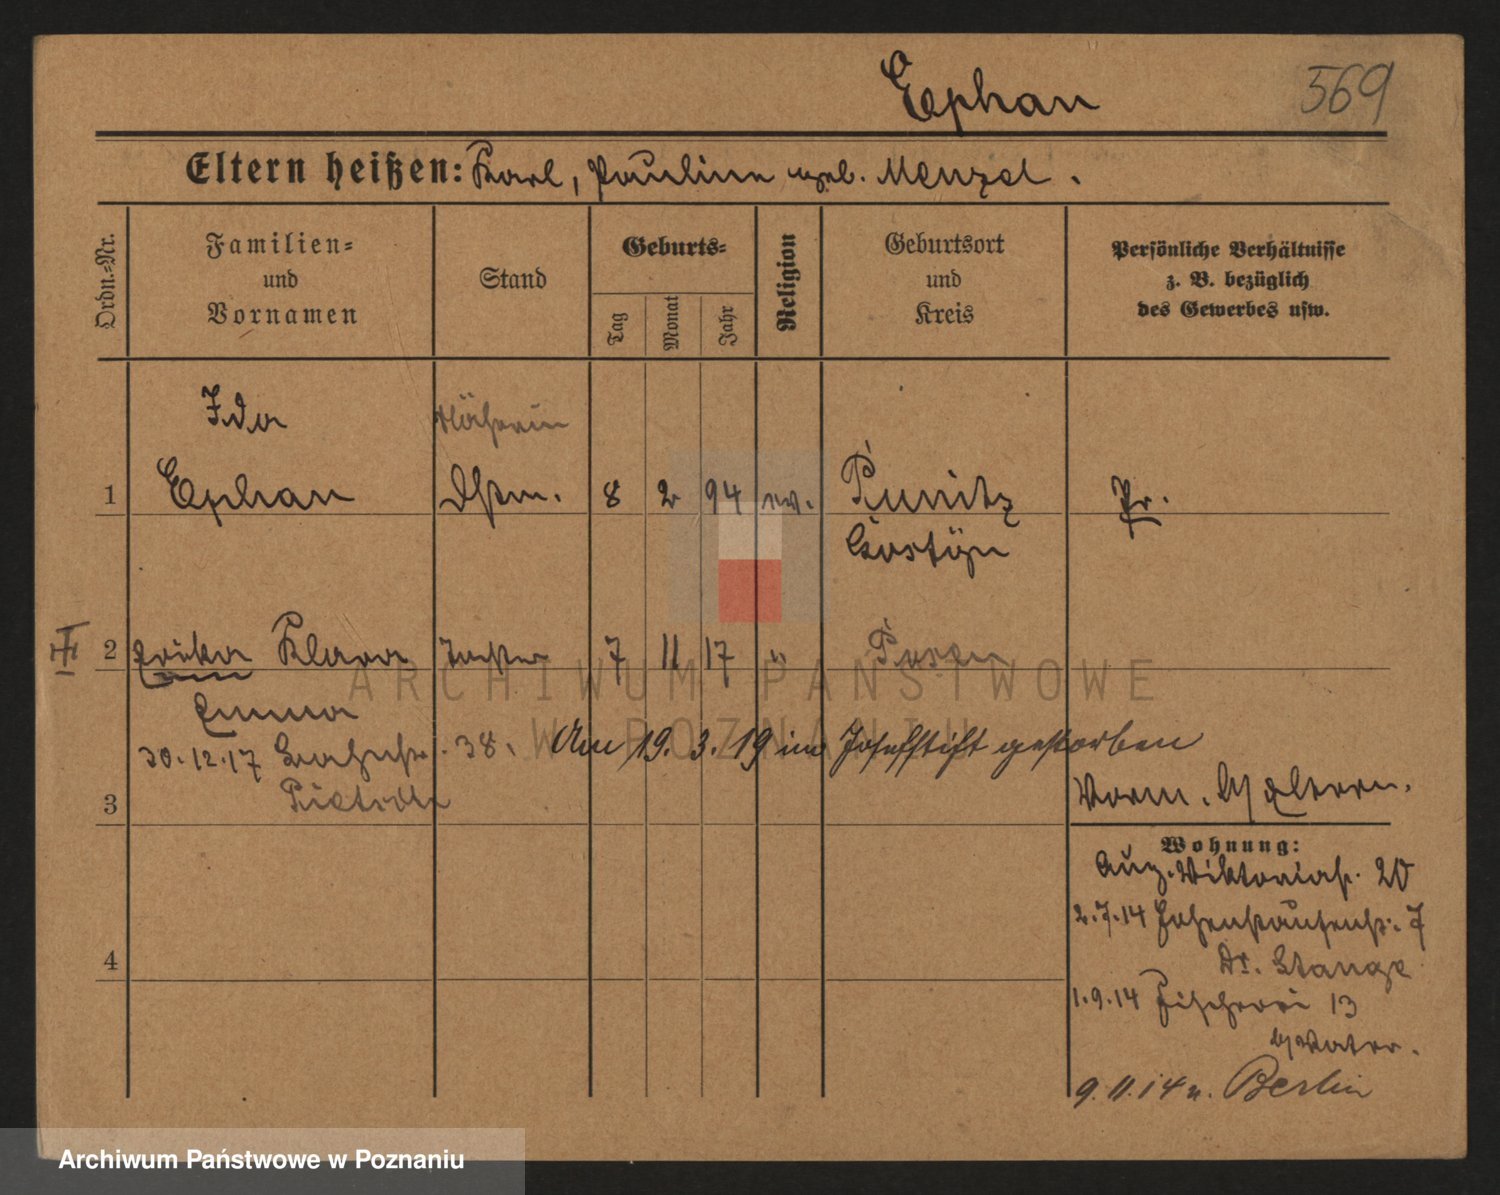 Ephan
569
Eltern heißen: Karl, Pauline geb. Menzel.
Ordn.=Nr.
Familien=
und
Vornamen
Stand
Geburts=
Tag
Monat
Jahr
Religion
Geburtsort
und
Kreis
Persönliche Verhältnisse
z. B. bezüglich
des Gewerbes usw.
Ida Näherin
1 Ephan Dstm. 8 2 94 ev. Punitz Pr.
Gostyn
2 Erika Klara Tochter 7 11 17 " Posen
Emma
30.12.17 38. Am 19.3.19 im Josefstift gestorben
3
Vorm. b/ Eltern.
Wohnung:
Aug. Viktoriast. 20
2.7.14 Hohenstaufenstr. 7
Dr. Stange
1.9.14 Fischerei 13
b/ Vater.
4
9.11.14 n. Berlin
ARCHIWUM PAŃSTWOWE
W POZNANIU
Archiwum Państwowe w Poznaniu